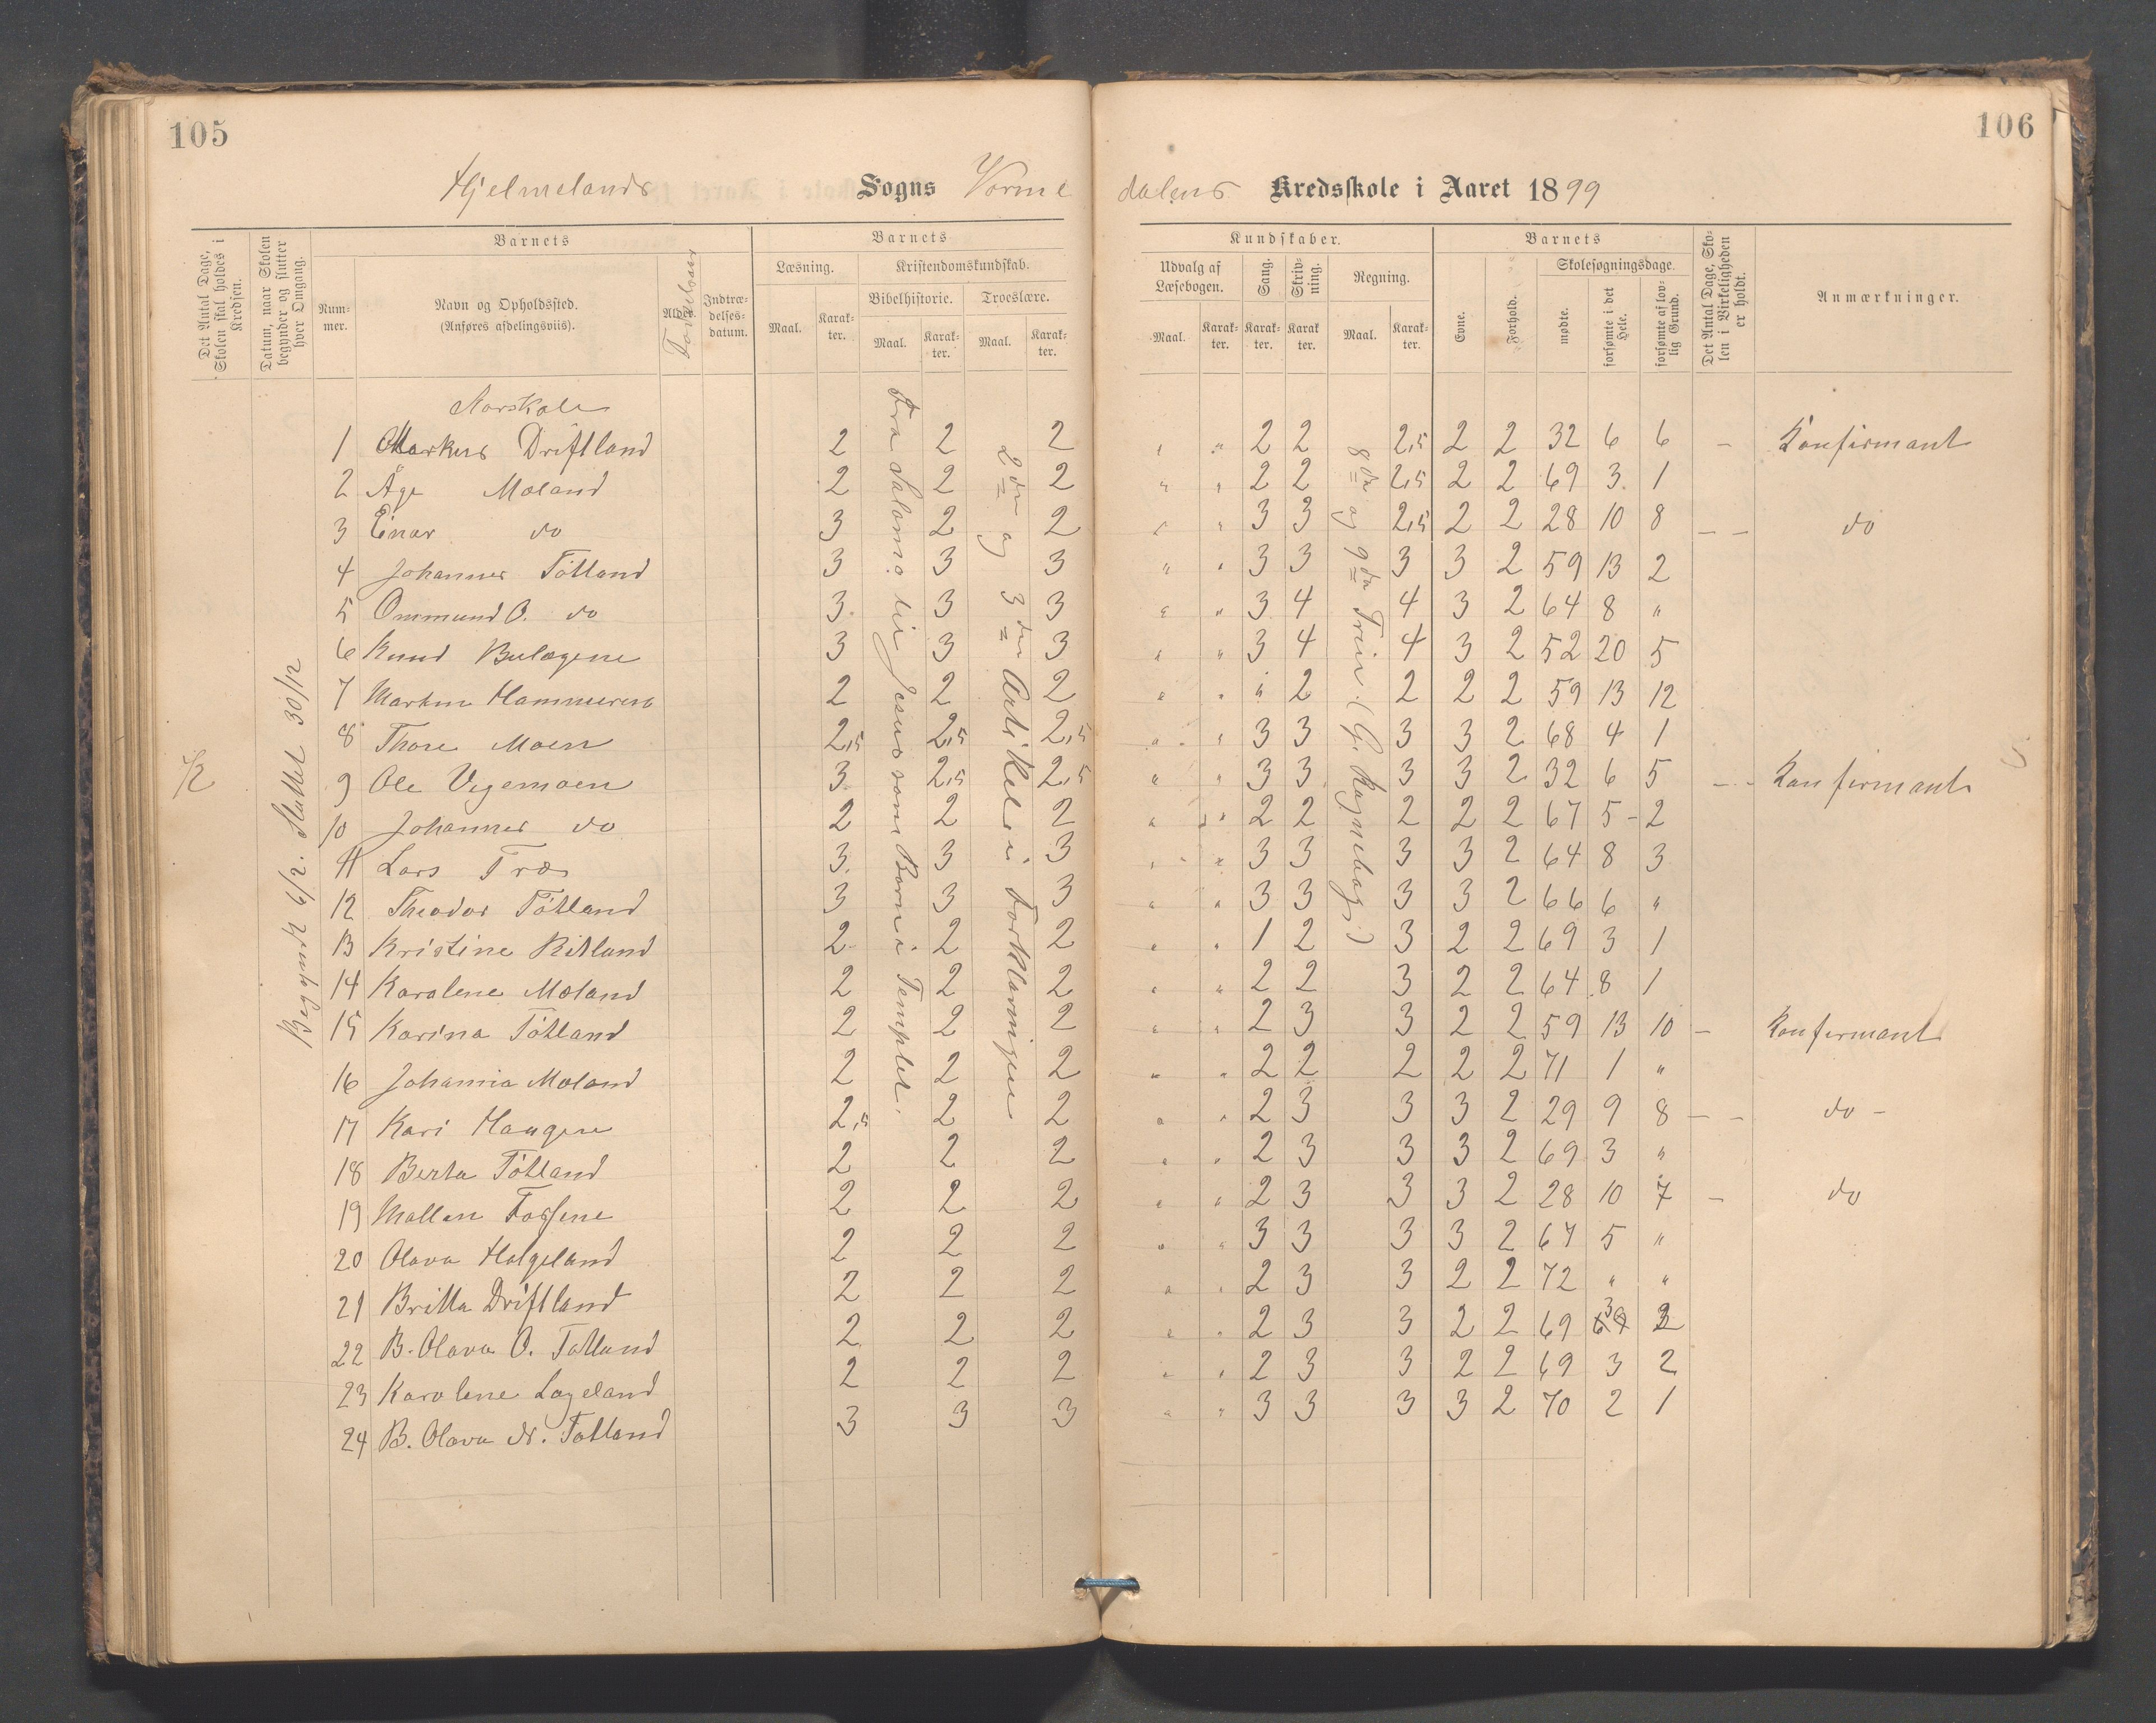 105
106
Hjelmelands Sogns Vorme
dalens Kredsskole i Aaret 1899
Det Antal Dage, Skolen skal holdes i Kredsen.
Datum, naar Skolen begynder og slutter hver Omgang.
Barnets
Num-
mer.
Navn og Opholdssted.
(Anføres afdelingsviis).
Indtræ-
delses-
datum.
Barnets
Læsning.
Kristendomskundskab.
Bibelhistorie. Troeslære.
Maal. Karak-
ter.
Maal. Karak-
ter.
Maal. Karak-
ter.
Kundskaber.
Udvalg af
Læsebogen.
Sang.
Skriv-
ning.
Regning.
Maal. Karak-
ter.
Karak-
ter.
Karak
ter.
Maal. Karak-
ter.
Barnets
Evne.
Forhold.
Skolesøgningsdage.
mødte.
forsømte i det Hele.
forsømte af lov-
lig Grund.
Det Antal Dage, Sko-
len i Virkeligheden
er holdt.
Anmærkninger.
Begyndt 6/2. Sluttet 30/12
Fra Salomo til Jesus som Barn i Templet.
2den og 3die Artikel i Forklaringen
8de og 9de Trin. (G. Regnebog.)
1 Markus Driftland 2 2 2 " " 2 2 2,5 2 2 32 6 6 - Konfirmant
2 Åge Moland 2 2 2 " " 2 2 2,5 2 2 69 3 1
3 Einar do 3 2 2 " " 3 3 2,5 2 2 28 10 8 - - do
4 Johannes Tøtland 3 3 3 " " 3 3 3 3 2 59 13 2
5 Ommund O. do 3 3 3 " " 3 4 4 3 2 64 8 "
6 Knud 3 3 3 " " 3 4 4 3 2 52 20 5
7 2 2 2 " " " 2 2 2 2 59 13 12
8 Thore Moen 2,5 2,5 2,5 " " 3 3 3 3 2 68 4 1
9 Ole Vegemoen 3 2,5 2,5 " " 3 3 3 3 2 32 6 5 - - Konfirmant
10 Johannes do 2 2 2 " " 2 2 2 2 2 67 5 - 2
11 Lars Træ 3 3 3 " " 3 3 3 3 2 64 8 3
12 Theodor Tøtland 3 3 3 " " 3 3 3 3 2 66 6 "
13 Kristine Ritland 2 2 2 " " 1 2 3 2 2 69 3 1
14 Karolene Moland 2 2 2 " " 2 2 3 2 2 64 8 1
15 Karina Tøtland 2 2 2 " " 2 3 3 2 2 59 13 10 - Konfirmant
16 Johanna Moland 2 2 2 " " 2 2 2 2 2 71 1 "
17 Kari Haugene 2,5 2 2 " " 2 3 3 3 2 29 9 8 - - do -
18 Berta Tøtland 2 2 2 " " 2 3 3 3 2 69 3 "
19 Mallen Fossene 2 2 2 " " 2 3 3 3 2 28 10 7 - do
20 Olava Helgeland 2 2 2 " " 3 3 3 3 2 67 5 "
21 Britta Driftland 2 2 2 " " 2 3 3 2 2 72 " "
22 B. Olava O. Tøtland 2 2 2 " " 2 3 3 2 2 69 3 2
23 Karolene Lageland 2 2 2 " " 2 3 3 2 2 69 3 2
24 B. Olava N. Tøtland 3 3 3 " " 3 3 3 3 2 70 2 1